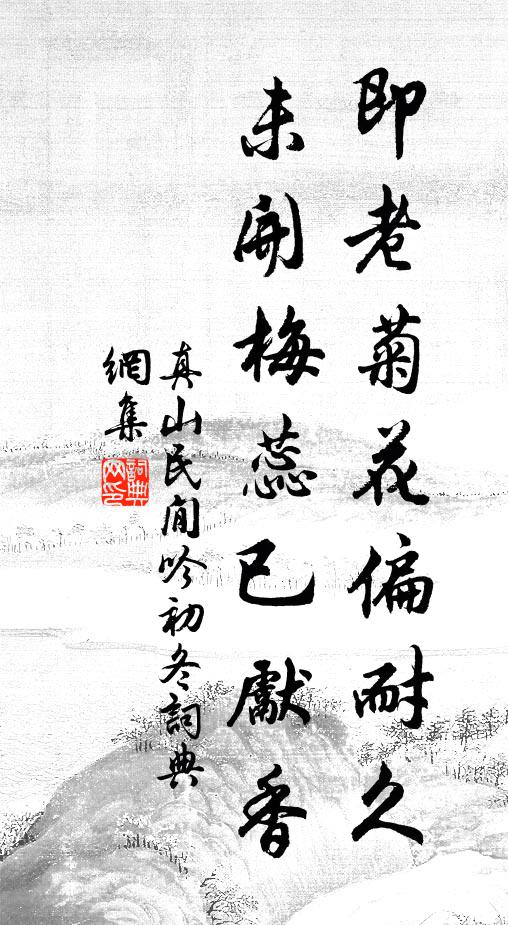 即老菊花偏耐久
未開梅蕊已獻香
真山民閒吟初冬詞典
網集
詞典網印